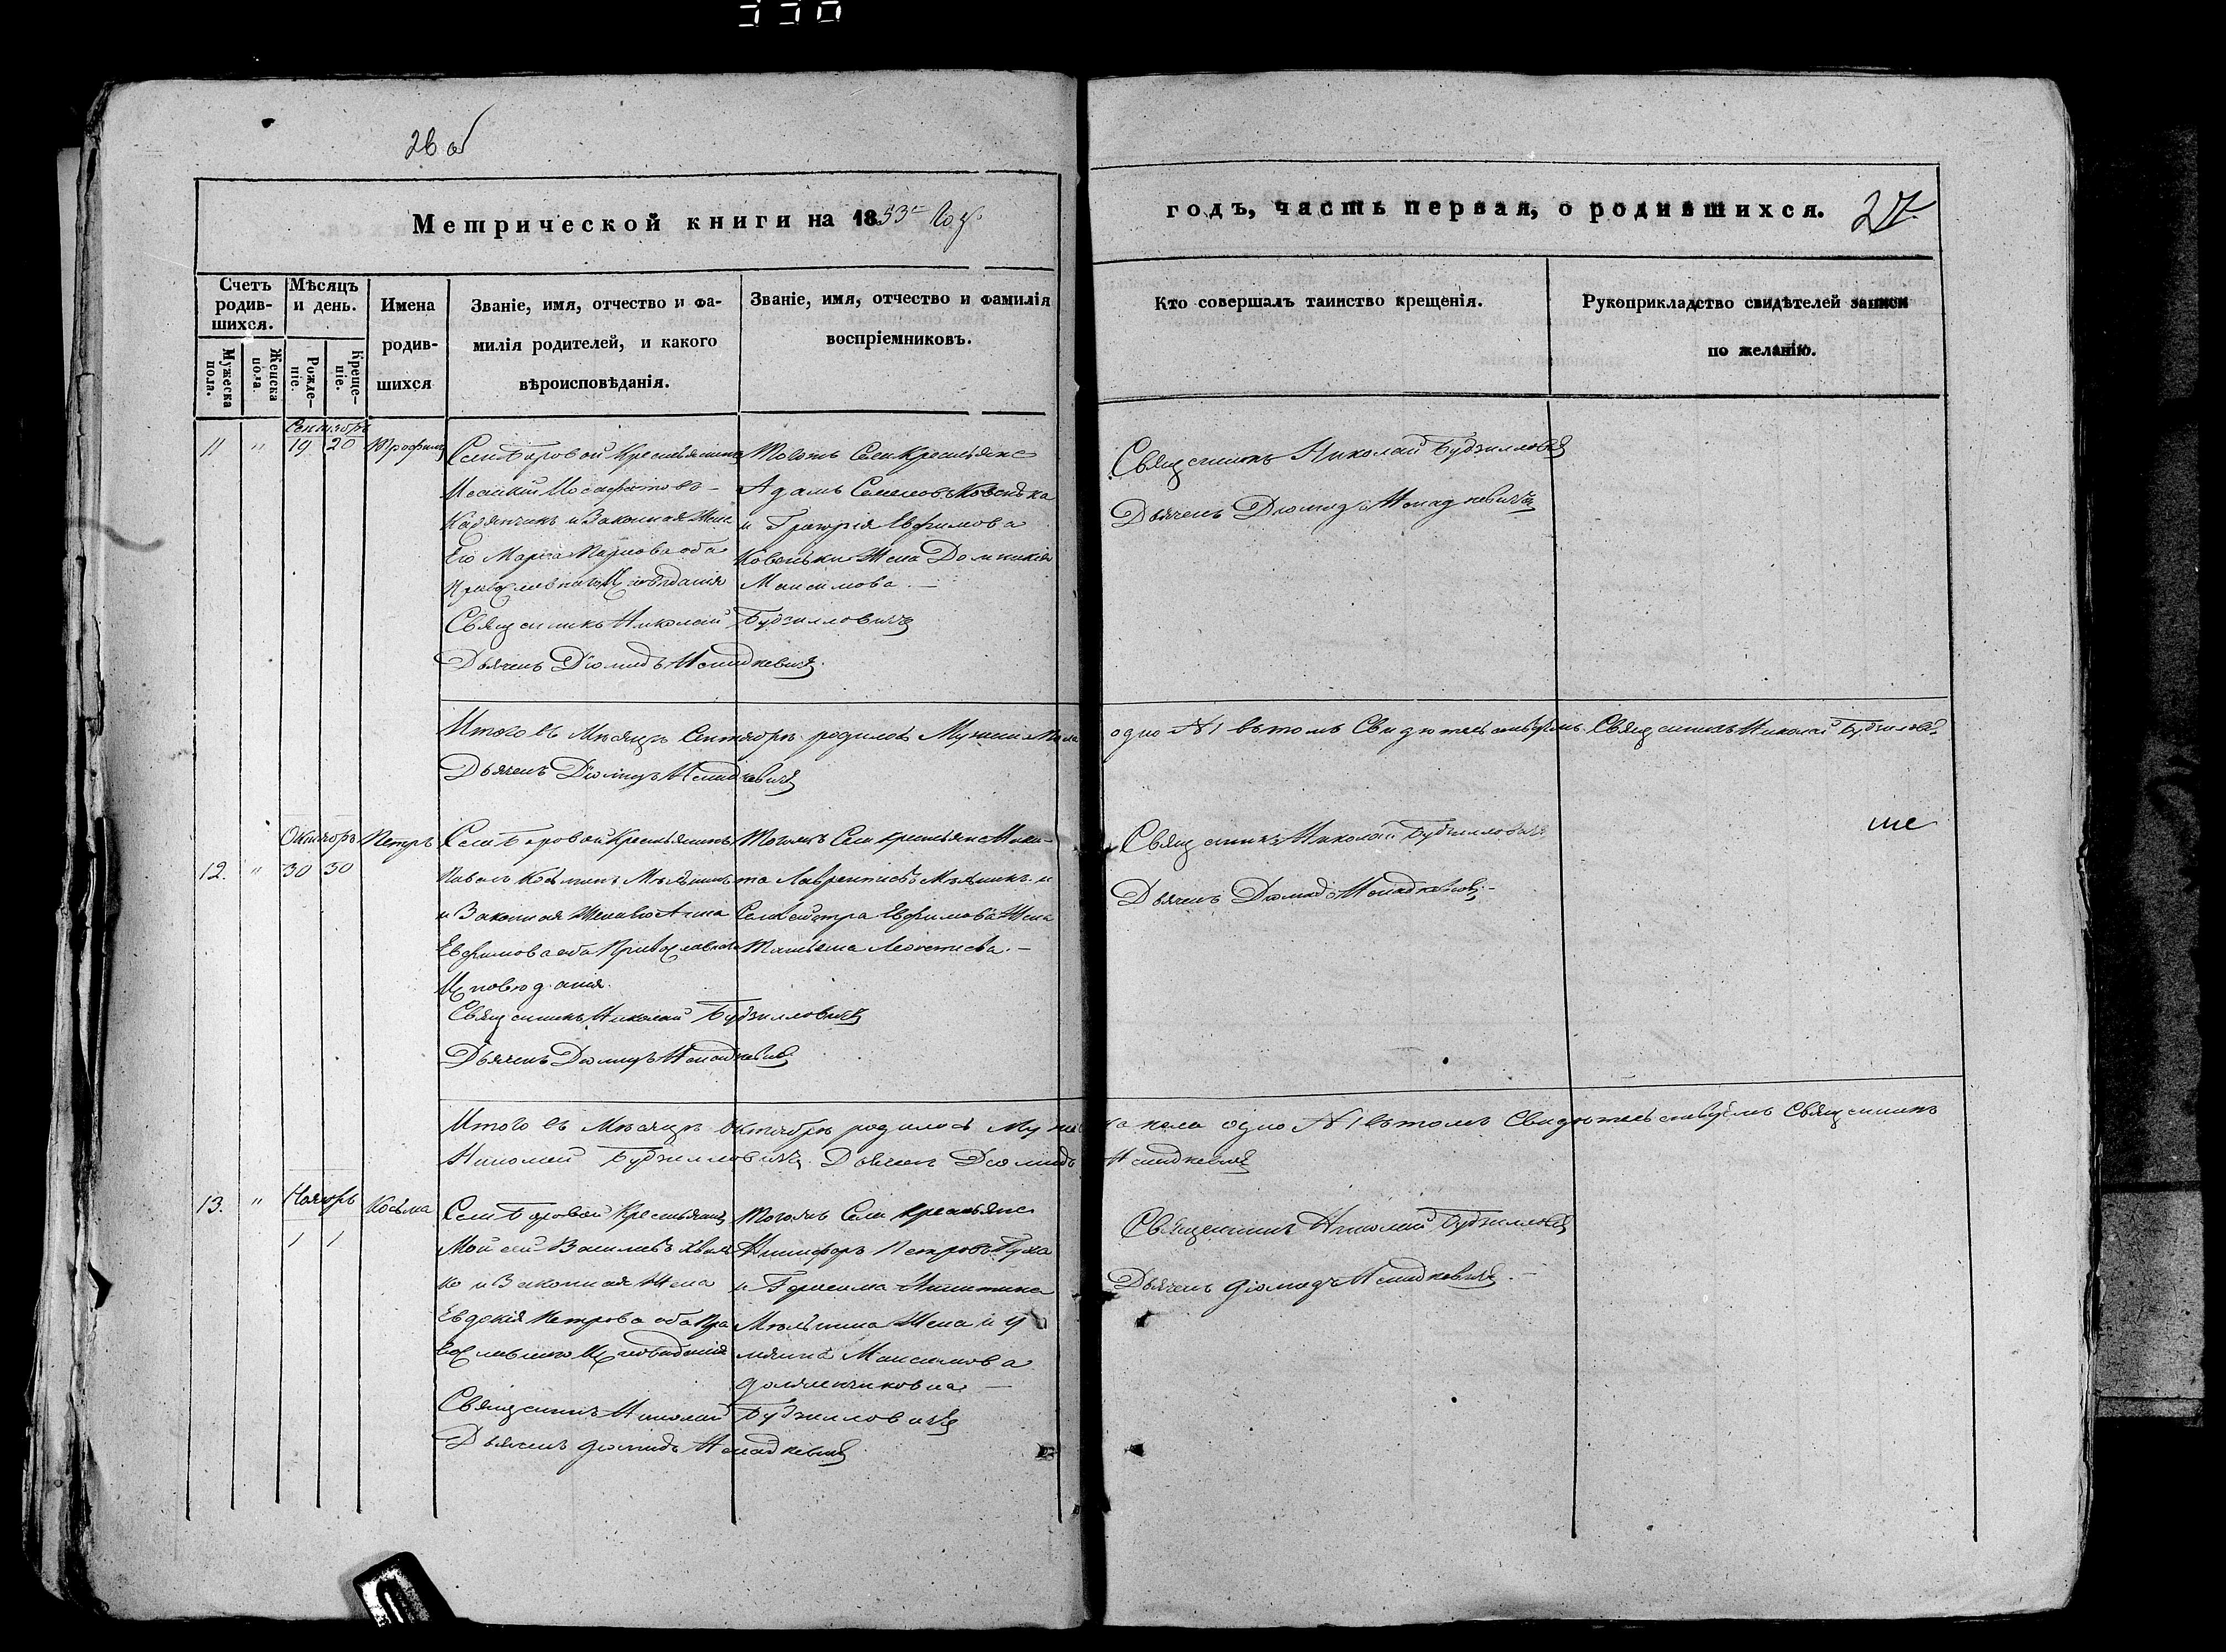 336
26 об
Метрической книги на 1853 Годъ
годъ, часть первая, о родившихся.
27
Счетъ родив-шихся.
Мужеска пола.
Женска пола.
Мѣсяцъ и день.
Рожде-ніе.
Креще-ніе.
Имена
родив-
шихся
Званіе, имя, отчество и фа-
милія родителей, и какого
вѣроисповѣданія.
Званіе, имя, отчество и фамилія
воспріемниковъ.
Кто совершалъ таинство крещенія.
Рукоприкладство свидѣтелей записи
по желанію.
Сентябрь
11 " 19 20 Трофимъ
Села Боровой Крестьянинъ
и Законная Жена
Его Марѳа оба
Православнаго Исповѣданія
Священникъ Николай Будзилловичъ
Дьячекъ Діомидъ
Тогожъ Села Крестьяне
Адамъ Семеновъ Ковенька
и Григорія Евфимова
Ковеньки Жена Домникія
Максимова —
Священникъ Николай Будзилловичъ
Дьячекъ Діомидъ
Итого въ Мѣсяцѣ Сентябрѣ родилось Мужеска Пола одно №1 въ томъ Свидѣтельствуемъ Священникъ Николай Будзилловичъ
Дьячекъ Діомидъ
Октябрь
12. " 30 30 Петръ
Села Боровой Крестьянинъ
Павелъ Козьминъ Мельникъ
и Законная Жена его Анна
Евфимова оба Православнаго
Исповѣданія.
Священникъ Николай Будзилловичъ
Дьячекъ Діомидъ
Тогожъ Села крестьяне Ники-
та Лаврентіевъ Мельникъ и
Евфимова Жена
Татьяна Леонтиева. —
Священникъ Николай Будзилловичъ
Дьячекъ Діомидъ
Итого въ Мѣсяцѣ Октябрѣ родилось Мужеска пола одно №1 въ томъ Свидѣтельствуемъ Священникъ
Николай Будзилловичъ Дьячекъ Діомидъ
Ноябрь
13. " 1 1 Косьма
Села Боровой Крестьянинъ
Мойсей Васильевъ
и Законная Жена
Евдокія Петрова оба Пра
вославнаго Исповѣданія
Священникъ Николай Будзилловичъ
Дьячекъ Діомидъ
Тогожъ Села крестьяне
Никифоръ Петровъ
и Герасима Никитина
Мельника Жена
Максимова
Священникъ Николай Будзилловичъ
Дьячекъ Діомидъ